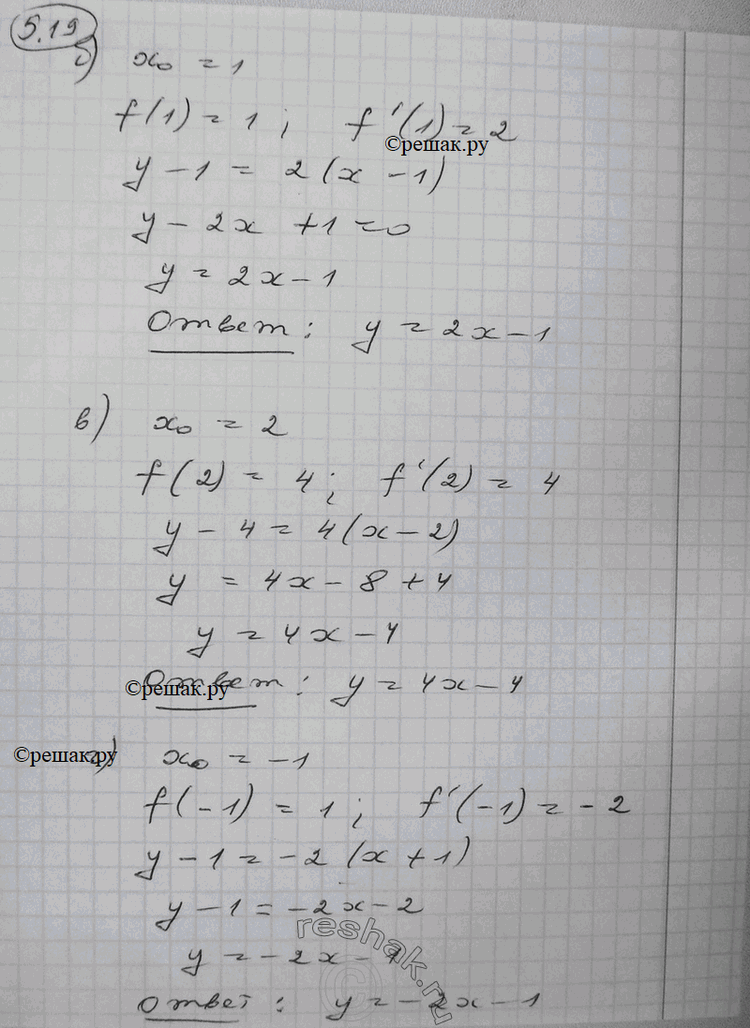 5.19
б) x₀ = 1
f(1) = 1 ; f'(1) = 2
©решак.ру
y - 1 = 2(x - 1)
y - 2x + 1 = 0
y = 2x - 1
Ответ : y = 2x - 1
в) x₀ = 2
f(2) = 4 ; f'(2) = 4
y - 4 = 4(x - 2)
y = 4x - 8 + 4
y = 4x - 4
Ответ : y = 4x - 4
©решак.ру
©решак.ру
г) x₀ = -1
f(-1) = 1 ; f'(-1) = -2
y - 1 = -2(x + 1)
y - 1 = -2x - 2
y = -2x - 1
reshak.ru
Ответ : y = -2x - 1